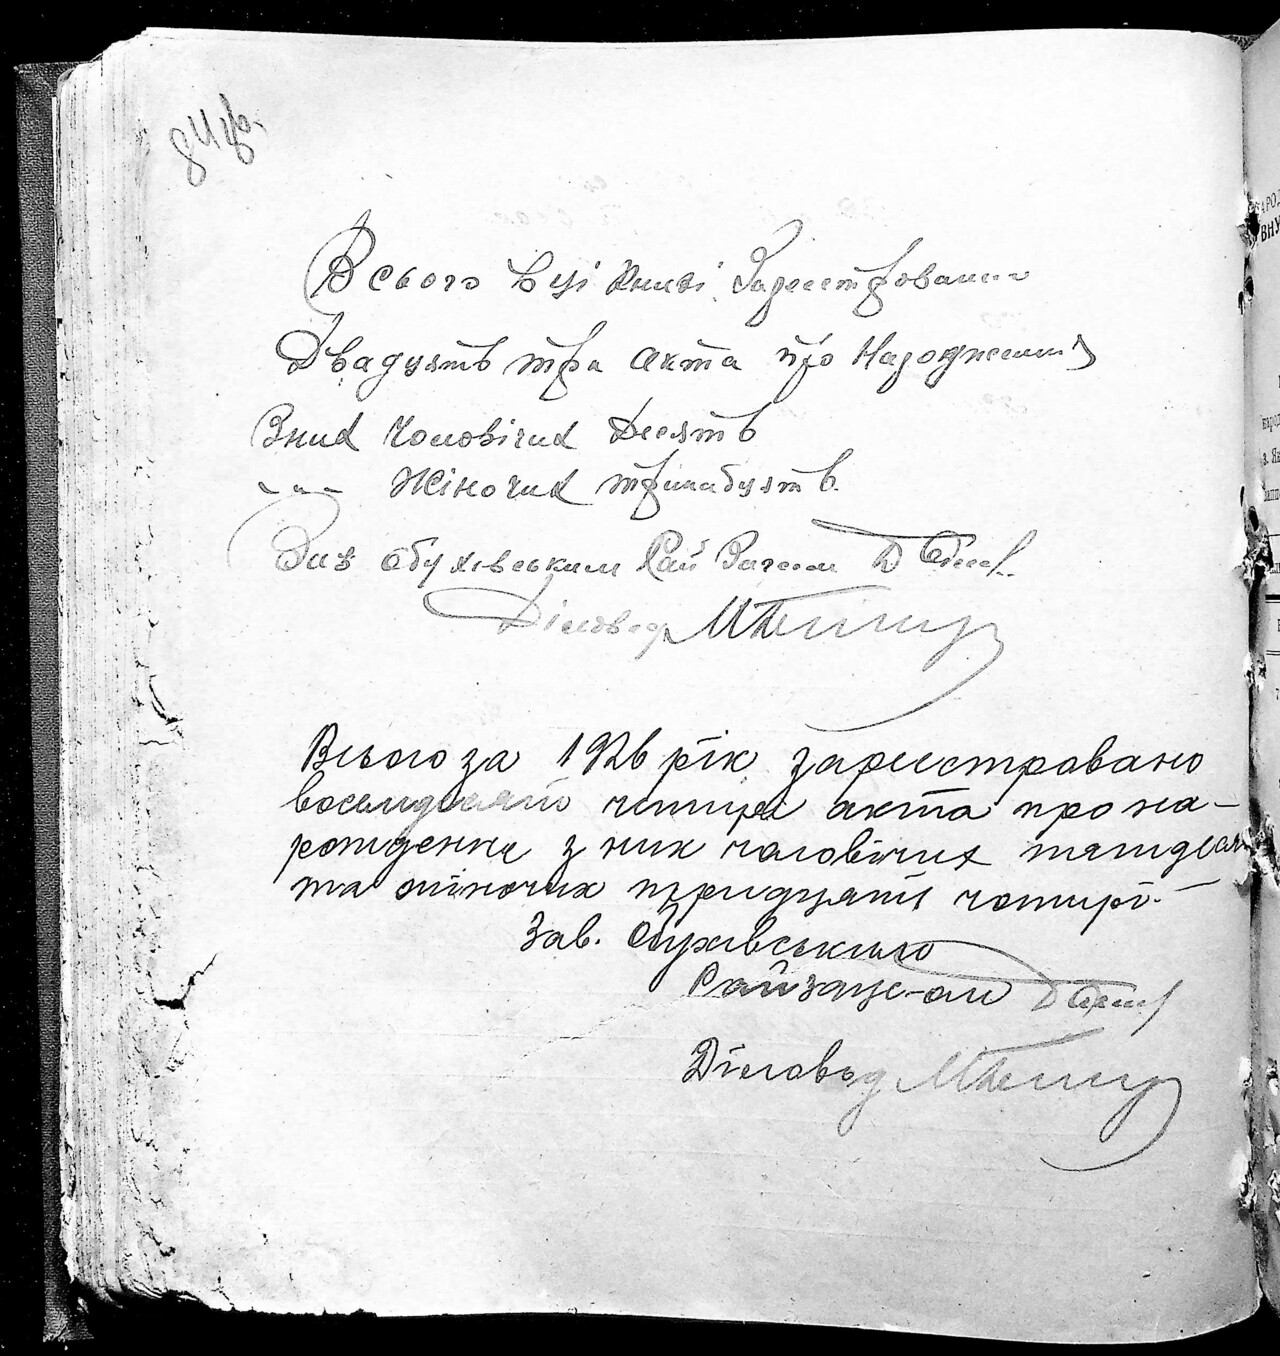 84 зв.
Всього в ці книзі Зареєстровано
Двадцять три акта про Народження
Зних Чоловічих Десять
-"- Жіночих тринадцять
Зав Обухівським Рай Загсом
Діловод
Всього за 1926 рік зареєстровано
восьмидесять чотири акта про на-
рождення з них чоловічих пятидесят
та жіночих тридцять чотирі.
Зав. Обухівського
Райзагс-ом
Діловод
АРОД
ВНУ